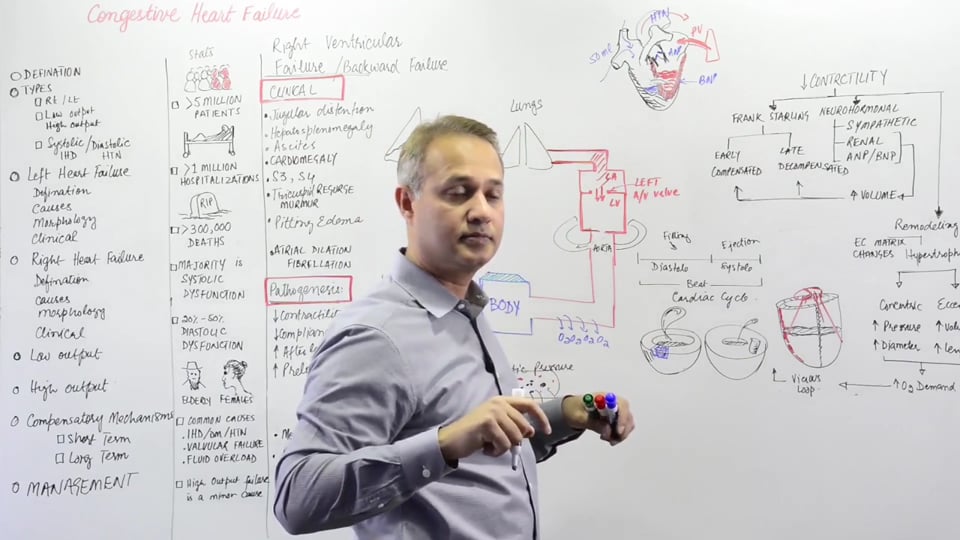 Congestive Heart Failure
O DEFINATION
O TYPES
□ Rt / Lt
□ Low output
High output
□ Systolic/Diastolic
IHD HTN
O Left Heart Failure
Defination
Causes
Morphology
Clinical
O Right Heart Failure
Defination
causes
morphology
Clinical
O Low output
O High output
O Compensatory Mechanisms
□ Short Term
□ Long Term
O MANAGEMENT
Stats
□ >5 MILLION
PATIENTS
□ >1 MILLION
HOSPITALIZATIONS
RIP
□ >300,000
DEATHS
□ MAJORITY IS
SYSTOLIC
DYSFUNCTION
□ 20% - 50%
DIASTOLIC
DYSFUNCTION
ELDERLY FEMALES
□ COMMON CAUSES
. IHD/DM/HTN
. VALVULAR FAILURE
. FLUID OVERLOAD
□ High Output failure
is a minor cause
Right Ventricular
Failure /Backward Failure
CLINICAL
• Jugular distention
• Hepatosplenomegaly
• Ascites
• CARDIOMEGALY
• S3, S4
• Tricuspid/REGURGE
MURMUR
• Pitting Edema
• ATRIAL DILATION
FIBRELLATION
Pathogenesis:
↓ Contractili
↓ Complian
↑ After l
↑ Prel
Lungs
LA
LV
LEFT
A/V valve
AORTA
BODY
O2 O2 O2 O2
tic pressure
HTN
50ml
PV
ANP
BNP
Filling
Ejection
Diastole
Systole
Beat
Cardiac Cycle
↓ CONTRCTILITY
FRANK STARLING
NEUROHORMONAL
SYMPATHETIC
RENAL
ANP/BNP
EARLY
COMPENSATED
LATE
DECOMPENSATED
↑ VOLUME
Remodeling
EC MATRIX
CHANGES
Hypertroph
Concentric
↑ Pressure
↑ Diameter
Ecce
↑ Volu
↑ Len
↑ O2 Demand
Vicious
Loop